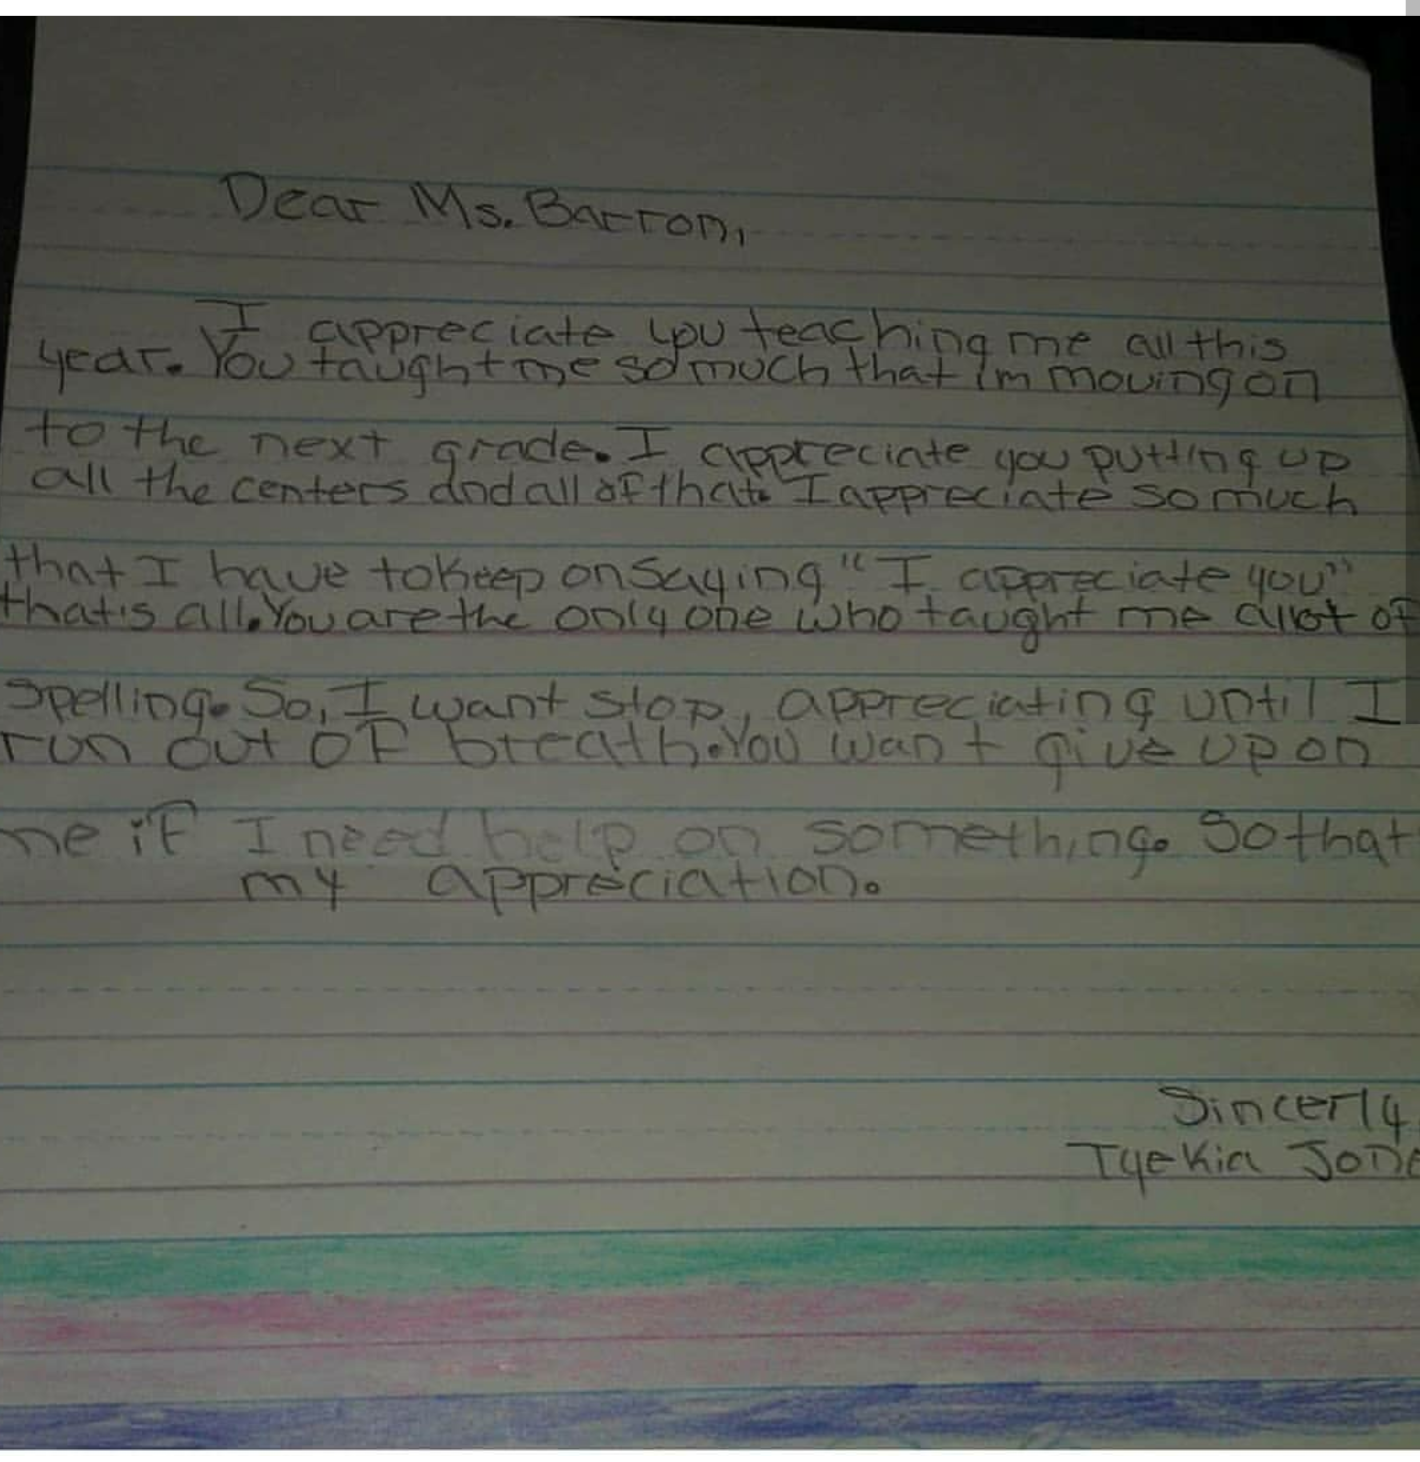 Dear Ms. Barron,
I appreciate you teaching me all this
year. You taught me so much that i'm moving on
to the next grade. I appreciate you putting up
all the centers and all of that. I appreciate so much
that I have to keep on saying "I appreciate you"
that's all. You are the only one who taught me allot of
spelling. So, I want stop, appreciating until I
run out of breath. You want give up on
me if I need help on something. So that
my appreciation.
Sincerly
Tyekia Jone